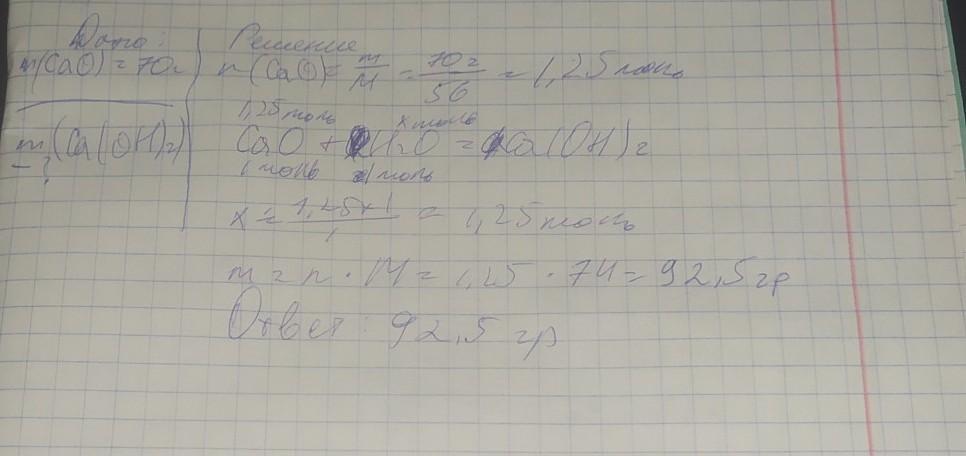 Дано:
m(CaO) = 70г
m(Ca(OH)2)
- ?
Решение
n(CaO) = m/M = 70г/56 = 1,25 моль
1,25 моль x моль
CaO + H2O = Ca(OH)2
1 моль 1 моль
x = 1,25*1/1 = 1,25 моль
m = n · M = 1,25 · 74 = 92,5 гр
Ответ: 92,5 гр